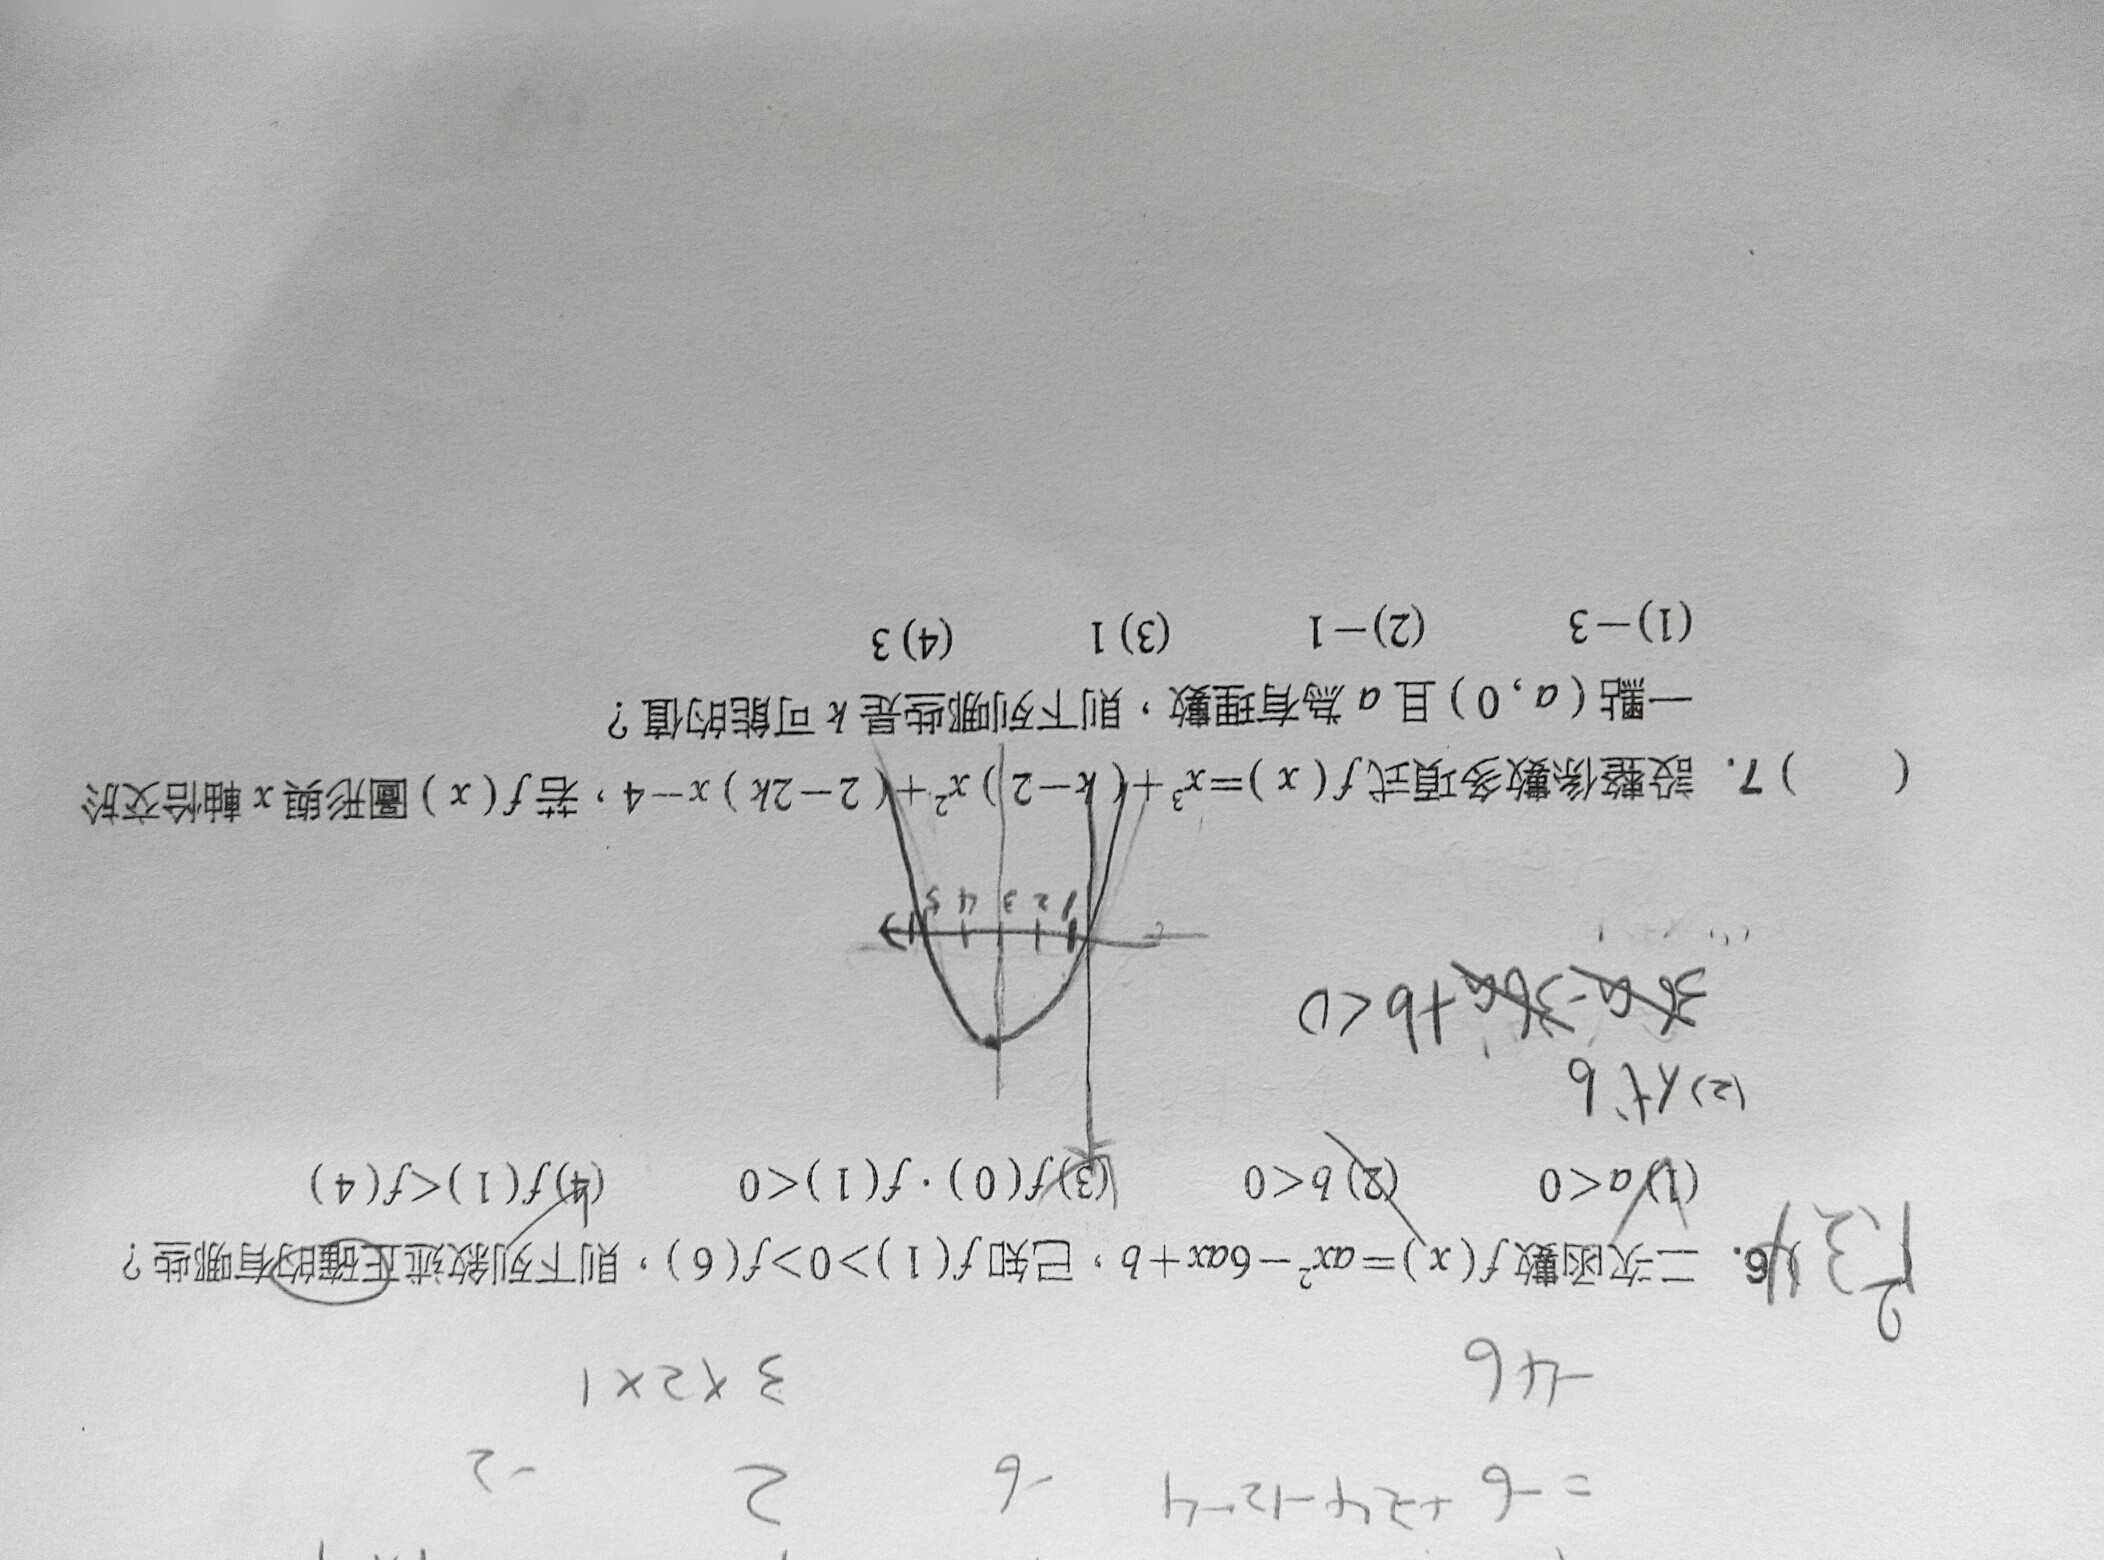 = -6 +24-12-4 -6 2 -2
-46 3×2×1
6. 二次函數 f(x)=ax²-6ax+b，已知 f(1)>0>f(6)，則下列敘述正確的有哪些？
(1) a<0 (2) b<0 (3) f(0)·f(1)<0 (4) f(1)<f(4)
(2) 代 6
36a-36a+b<0
1 2 3 4 5
( ) 7. 設整係數多項式 f(x)=x³+(k-2)x²+(2-2k)x-4，若 f(x) 圖形與 x 軸恰交於
一點 (a, 0) 且 a 為有理數，則下列哪些是 k 可能的值？
(1) -3 (2) -1 (3) 1 (4) 3